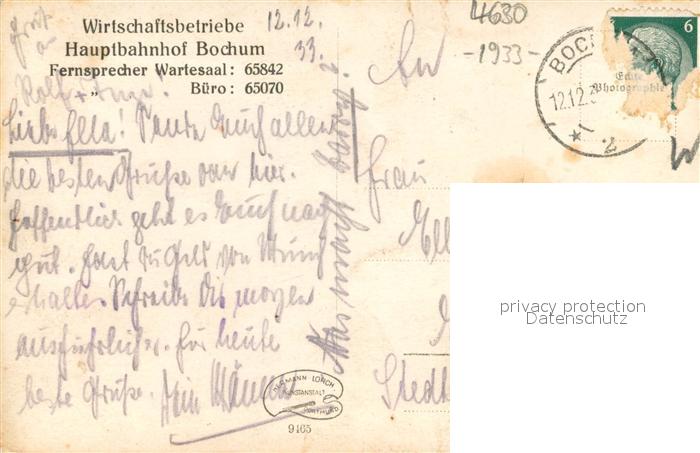 Wirtschaftsbetriebe
Hauptbahnhof Bochum
Fernsprecher Wartesaal: 65842
„ Büro: 65070
12.12.
33.
4630
-1933-
6
BOC
12.12.3
Echte
Photographie
An
Frau
Liebe Ella! Sende Euch allen
die besten Grüße von hier.
Hoffentlich geht es Euch noch
gut. Hast du Geld von
erhalten. Schreibe Dir morgen
ausführlicher. Für heute
beste Grüße. Dein
Was macht
HERMANN LORCH
KUNSTANSTALT
DORTMUND
9165
privacy protection
Datenschutz